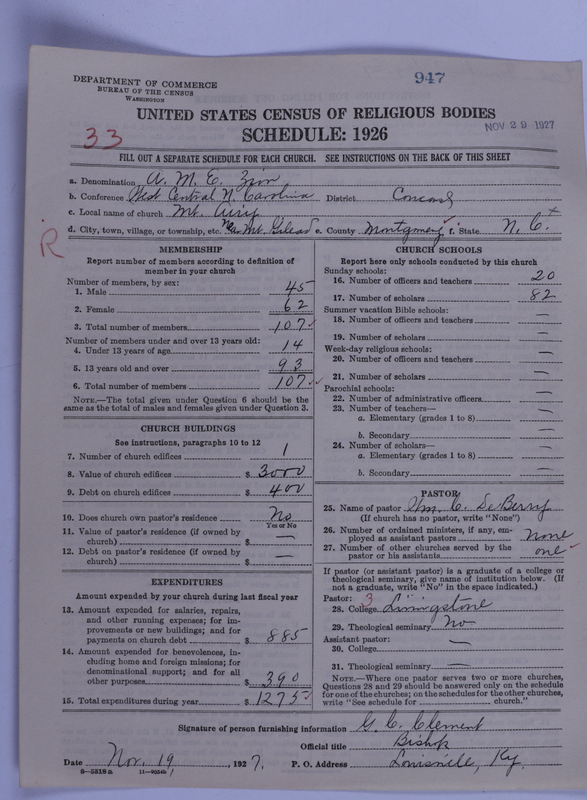 947
DEPARTMENT OF COMMERCE
BUREAU OF THE CENSUS
WASHINGTON
UNITED STATES CENSUS OF RELIGIOUS BODIES
SCHEDULE: 1926
NOV 29 1927
33
FILL OUT A SEPARATE SCHEDULE FOR EACH CHURCH. SEE INSTRUCTIONS ON THE BACK OF THIS SHEET
a. Denomination A. M. E. Zion
b. Conference West Central N. Carolina District Concord
c. Local name of church Mt. Airy
d. City, town, village, or township, etc. Near Mt. Gilead e. County Montgomery f. State N. C.
R
MEMBERSHIP
Report number of members according to definition of
member in your church
Number of members, by sex:
1. Male 45
2. Female 62
3. Total number of members 107
Number of members under and over 13 years old:
4. Under 13 years of age 14
5. 13 years old and over 93
6. Total number of members 107
NOTE.—The total given under Question 6 should be
same as the total of males and females given under Question 3.
CHURCH BUILDINGS
See instructions, paragraphs 10 to 12
7. Number of church edifices 1
8. Value of church edifices $ 3000
9. Debt on church edifices $ 400
10. Does church own pastor's residence No
Yes or No
11. Value of pastor's residence (if owned by
church) $ —
12. Debt on pastor's residence (if owned by
church) $ —
EXPENDITURES
Amount expended by your church during last fiscal year
13. Amount expended for salaries, repairs,
and other running expenses; for im-
provements or new buildings; and for
payments on church debt $ 885
14. Amount expended for benevolences, in-
cluding home and foreign missions; for
denominational support; and for all
other purposes $ 390
15. Total expenditures during year $ 1275
CHURCH SCHOOLS
Report here only schools conducted by this church
Sunday schools:
16. Number of officers and teachers 20
17. Number of scholars 82
Summer vacation Bible schools:
18. Number of officers and teachers —
19. Number of scholars —
Week-day religious schools:
20. Number of officers and teachers —
21. Number of scholars —
Parochial schools:
22. Number of administrative officers —
23. Number of teachers—
a. Elementary (grades 1 to 8) —
b. Secondary —
24. Number of scholars—
a. Elementary (grades 1 to 8) —
b. Secondary —
PASTOR
25. Name of pastor Wm. C. DeBerry
(If church has no pastor, write "None")
26. Number of ordained ministers, if any, em-
ployed as assistant pastors none
27. Number of other churches served by the
pastor or his assistants one
If pastor (or assistant pastor) is a graduate of a college or
theological seminary, give name of institution below. (If
not a graduate, write "No" in the space indicated.)
Pastor: 3
28. College Livingstone
29. Theological seminary No
Assistant pastor:
30. College —
31. Theological seminary —
NOTE.—Where one pastor serves two or more churches,
Questions 28 and 29 should be answered only on the schedule
for one of the churches; on the schedules for the other churches,
write "See schedule for church."
Signature of person furnishing information G. C. Clement
Official title Bishop
Date Nov. 19, 1927. P. O. Address Louisville, Ky.
8-5518a